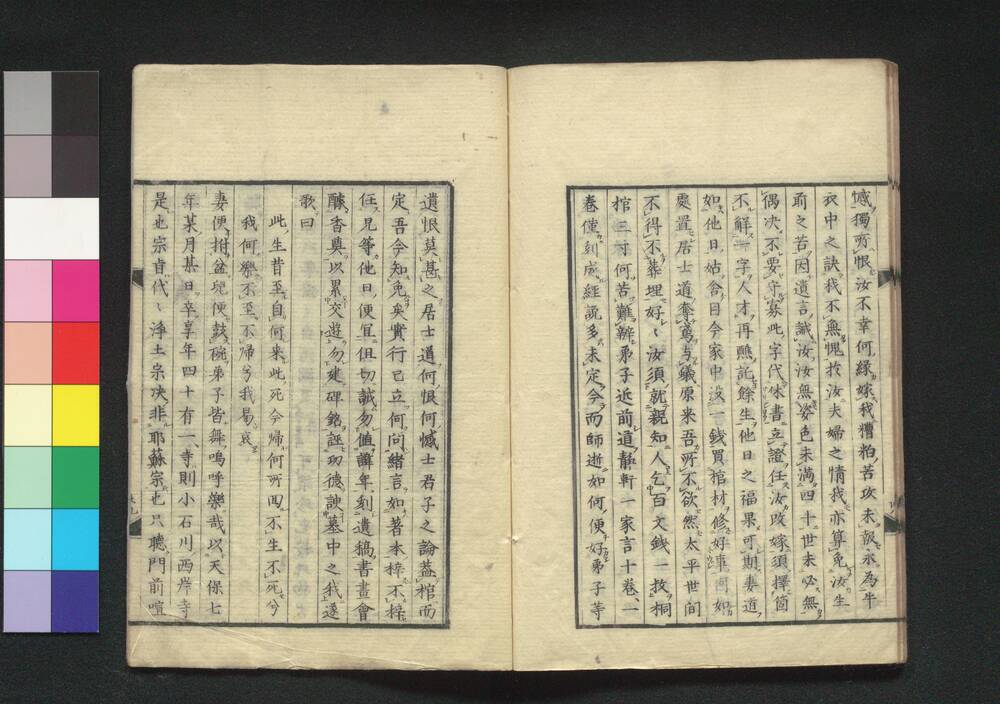 憾獨所恨汝不幸何緣嫁我糟粕苦攻未報永為牛
衣中之訣我不無愧於汝夫婦之情我亦算免汝生
前之苦因遺言誡汝汝無姿色未滿四十世未必無
偶決不要守寡此字代休書立證任汝改嫁須擇箇
不解一字人才再醮託餘生他日之福果可期妻道
如他日姑舍目今家中沒一錢買棺材修好事因如
處置居士道奪鳶与蟻原來吾所不欲然太平世間
不得不葬埋好〻汝須就親知人乞百文錢一枚桐
棺三寸何苦難辨弟子近前道靜軒一家言十卷一
卷僅刻成經說多未定今而師逝如何便好弟子等
遺恨莫甚之居士道何恨何憾士君子之論蓋棺而
定吾今知免矣實行已立何問緒言如著本梓不梓
任見等他日便宜但切誡勿値諱年刻遺稿書畫會
釀香奠以累交遊勿建碑銘誣功德諛墓中之我遂
歌曰
此生昔至自何来此死今歸何所回不生不死兮
我何樂不至不歸兮我易哀
妻便拊盆兒便鼓碗弟子皆舞嗚呼樂哉以天保七
年某月某日卒享年四十有一寺則小石川西岸寺
是也宗旨代〻淨土宗決非耶蘇宗也只聽門前喧